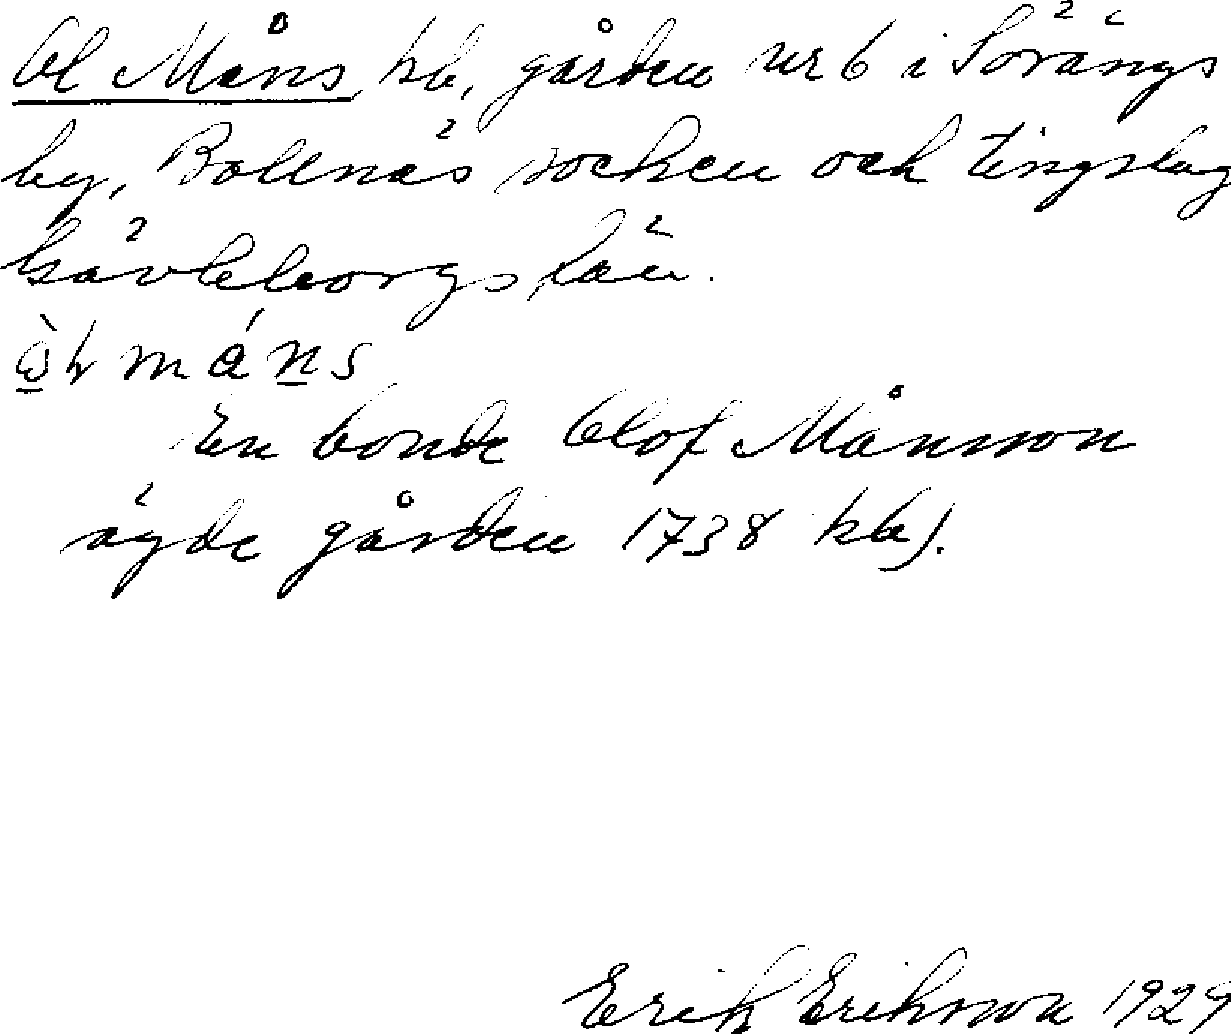 Ol Måns, kb, gården nr 6 i Sörängs
by, Bollnäs socken och tingslag
Gävleborgs län.
màns
En bonde Olof Månsson
ägde gården 1738 kb).
Erik Eriksson 1929